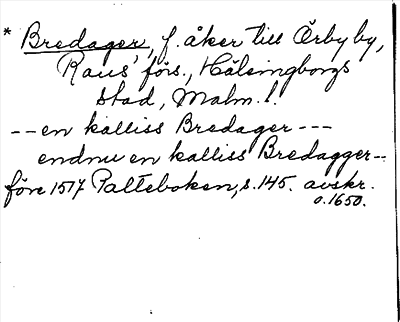 * Bredager, f. åker till Örby by,
Raus' förs., Hälsingborgs
stad, Malm. l.
-- en kalliss Bredager ---
endnu en kalliss Bredagger --
före 1517 Palteboken, s. 145. avskr.
o. 1650.